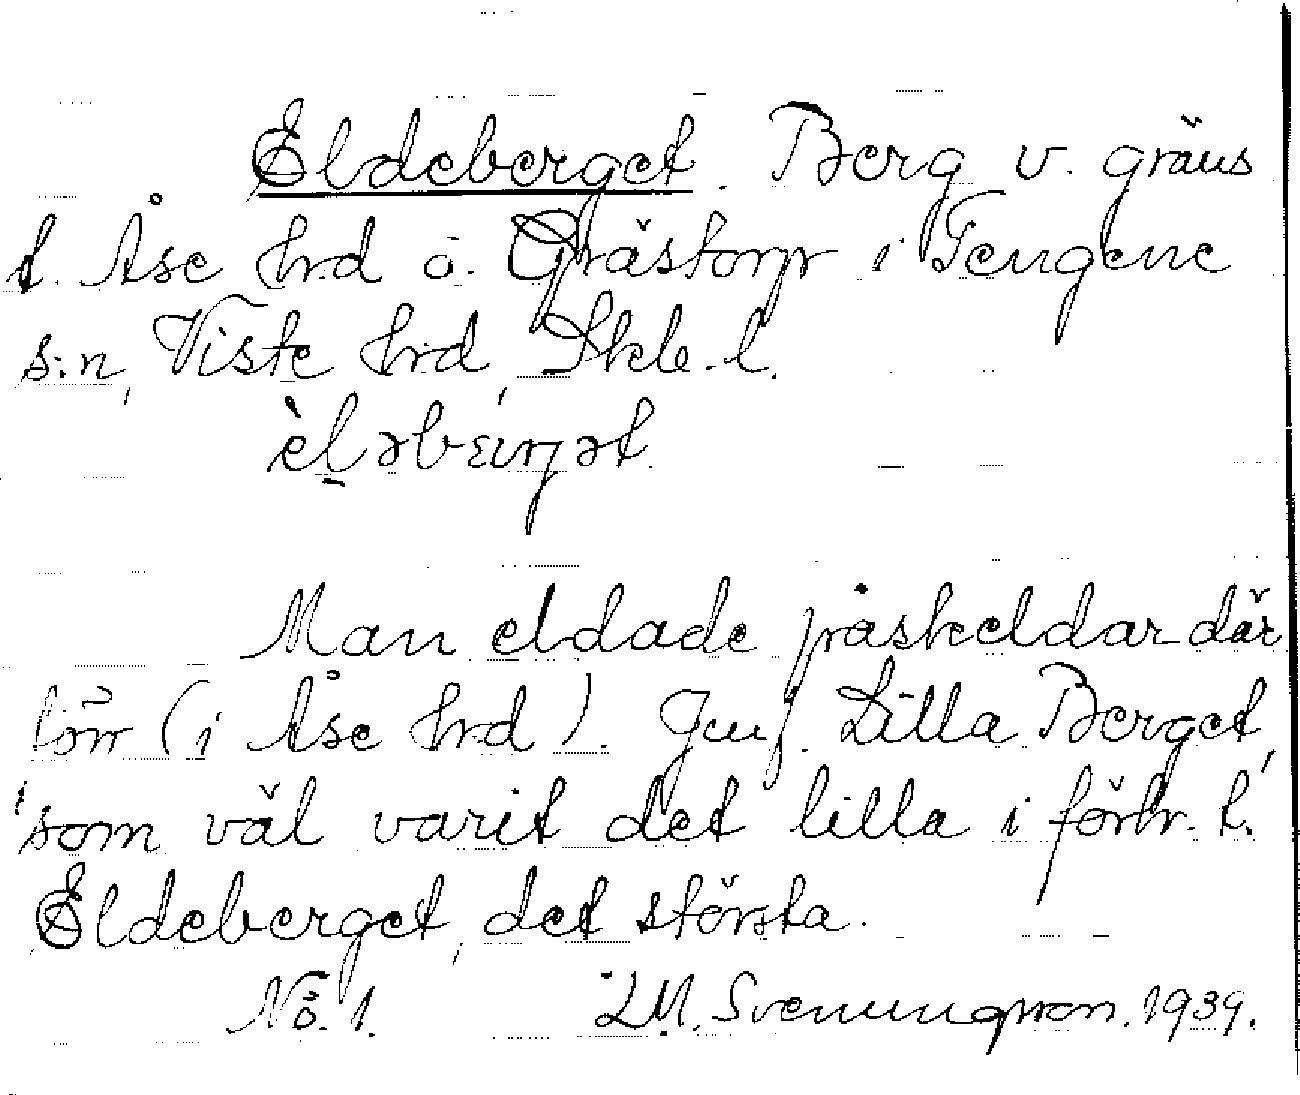 Eldeberget. Berg v. gräns
t. Åse hrd ö. Grästorp i Tengene
s:n, Viste hrd, Skbg. l.
Man eldade påskeldar där
förr (i Åse hrd). Jmf. Lilla Berget,
som väl varit det lilla i förh. t.
Eldeberget, det största.
Nö. 1. LM. Svenungsson. 1939.